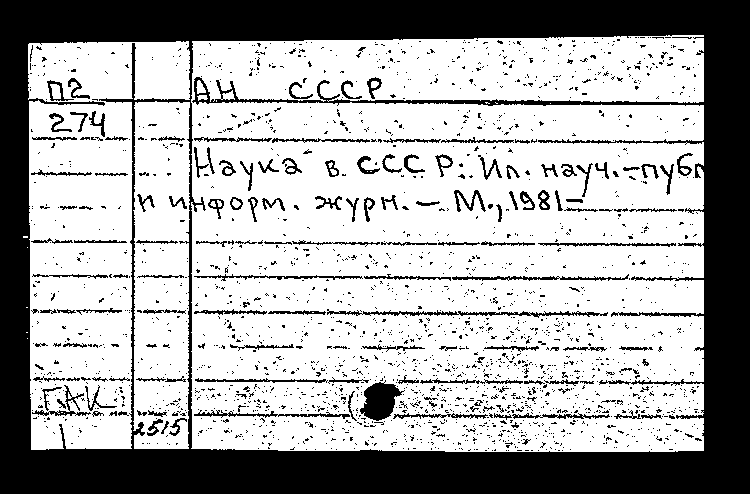 П2 АН СССР.
274
Наука в СССР: Ил. науч.-публ
и информ. журн. — М., 1981-
ГАК
1
2515